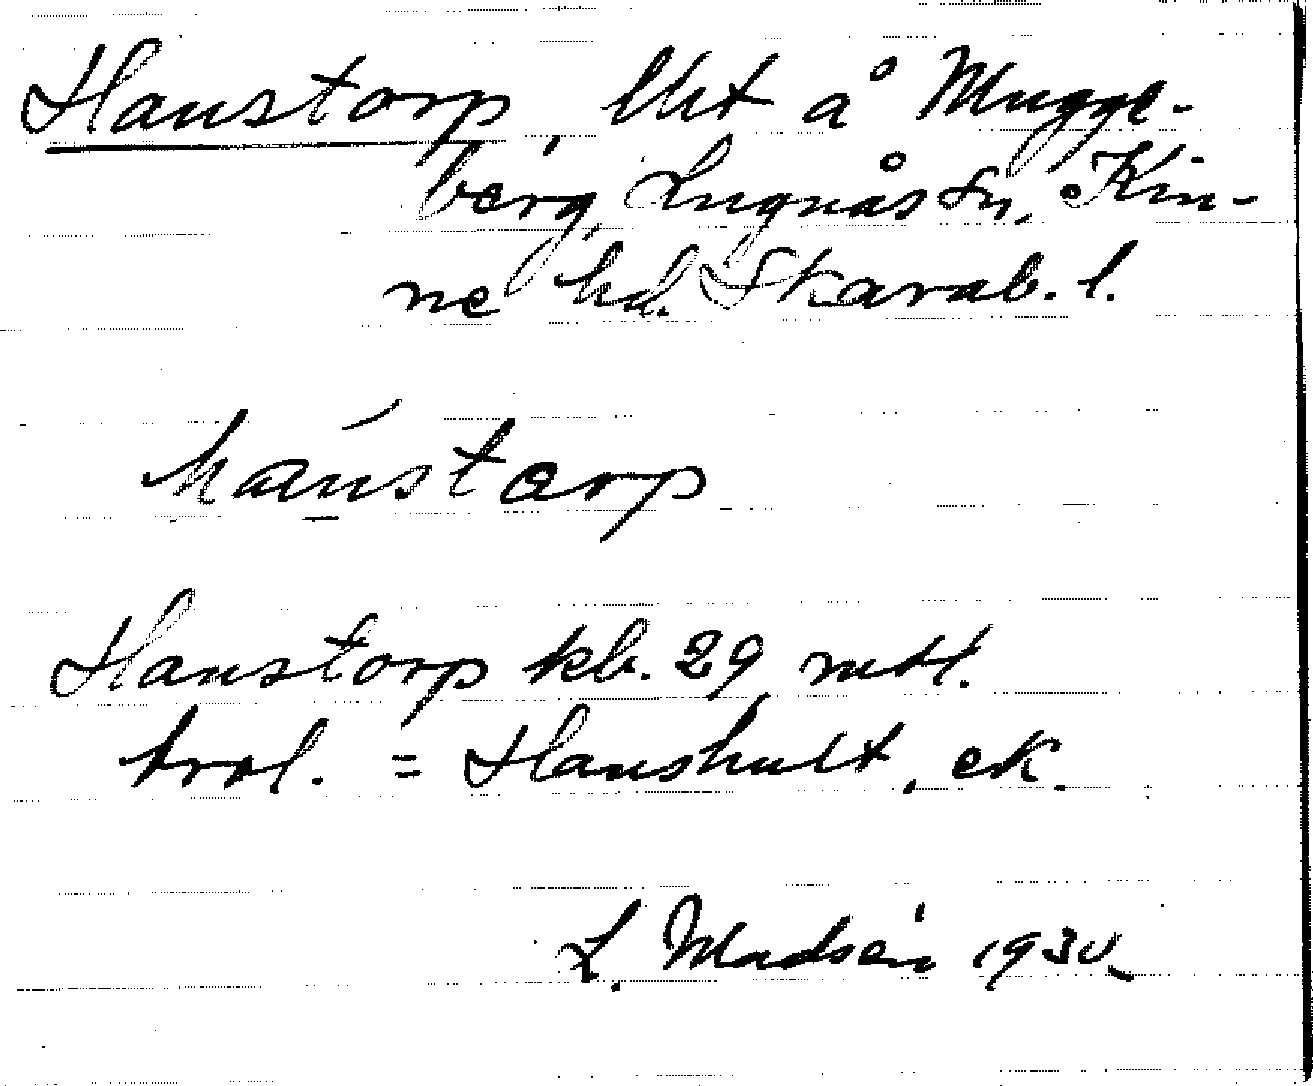 Hanstorp, lht å Mugge-
berg, Lugnås sn, Kin-
ne hd. Skarab. l.
hanstorp
Hanstorp kb. 29 mtl.
trol. = Hanshult, ek.
L. Modsén 1930